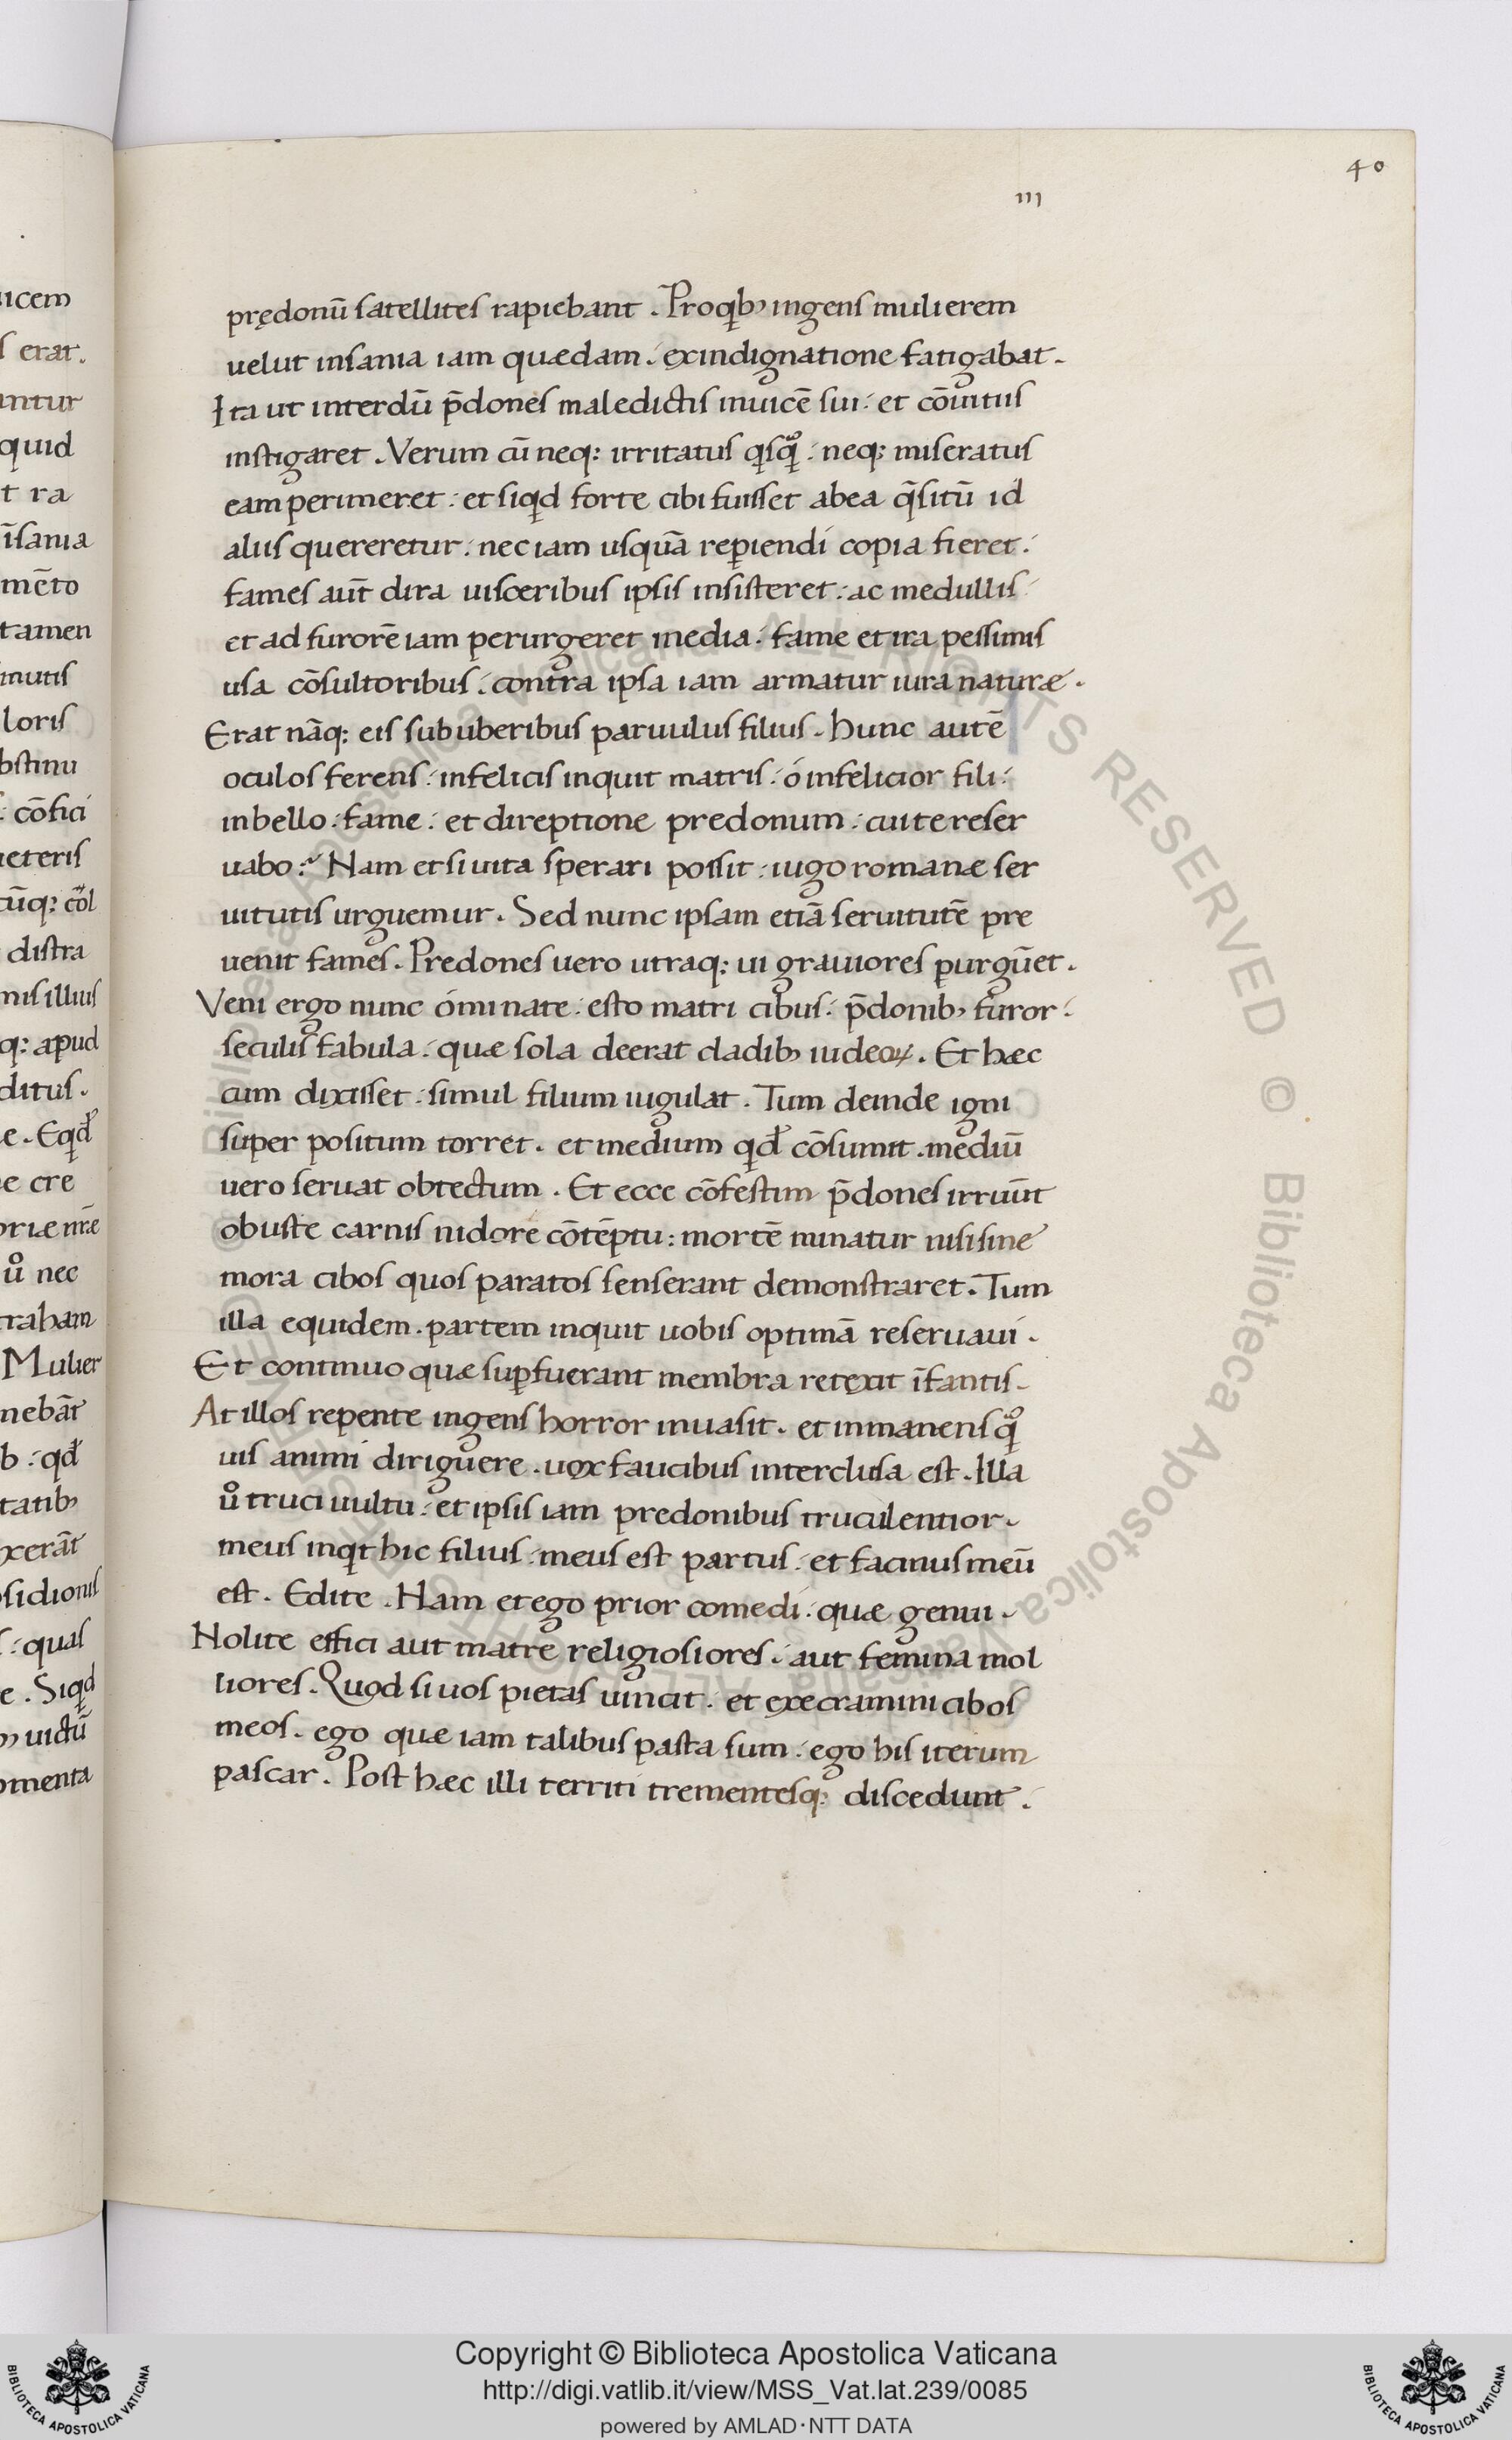 40
III
prędonū satellites rapiebant . Pro qib; ingens mulierem
uelut insania iam quædam . ex indignatione fatigabat .
Ita ut interdū p̄dones maledictis inuicē sui : et cōuitiis
instigaret . Verum cū neq; irritatus qisqͥº : neq; miseratus
eam perimeret : et siqid forte cibi fuisset ab ea q̄sitū id
aliis quereretur : nec iam usquā reꝑiendi copia fieret :
fames aūt dira uisceribus ipsis insisteret : ac medullis :
et ad furorē iam perurgeret media : fame et ira pessimis
usa cōsultoribus : contra ipsa iam armatur iura naturæ .
Erat nāq; eis sub uberibus paruulus filius . hunc autē
oculos ferens : infelicis inquit matris : ó infelicior fili :
in bello : fame : et direptione predonum : cui te reser
uabo :~ Nam et si uita sperari possit : iugo romanæ ser
uitutis urguemur . Sed nunc ipsam etiā seruitutē pre
uenit fames . Predones uero utraq; ui grauiores ꝑurgūet .
Veni ergo nunc ó mi nate : esto matri cibus : p̄donib; furor :
seculis fabula : quæ sola deerat cladib; iudeoꝝ . Et hæc
cum dixisset : simul filium iugulat . Tum deinde igni
super positum torret . et medium qid̄ cōsumit . mediū
uero seruat obtectum . Et ecce cōfestim p̄dones irruūt
obuste carnis nidore cōtēptu : mortē minatur nisi sine
mora cibos quos paratos senserant demonstraret . Tum
illa equidem . partem inquit uobis optimā reseruaui .
Et continuo quæ suꝑfuerant membra retexit īfantis .
At illos repente ingens horror inuasit . et inmanens qͥº
uis animi diriguere . uox faucibus interclusa est . Illa
uº truci uultu : et ipsis iam predonibus truculentior .
meus inqit hic filius : meus est partus : et facinus meū
est . Edite . Nam et ego prior comedi : quæ genui .
Nolite effici aut matre religiosiores : aut femina mol
liores . Quod si uos pietas uincit : et execramini cibos
meos . ego quæ iam talibus pasta sum : ego his iterum
pascar . Post hæc illi territi trementesq; discedunt .
Copyright © Biblioteca Apostolica Vaticana
http://digi.vatlib.it/view/MSS_Vat.lat.239/0085
powered by AMLAD·NTT DATA